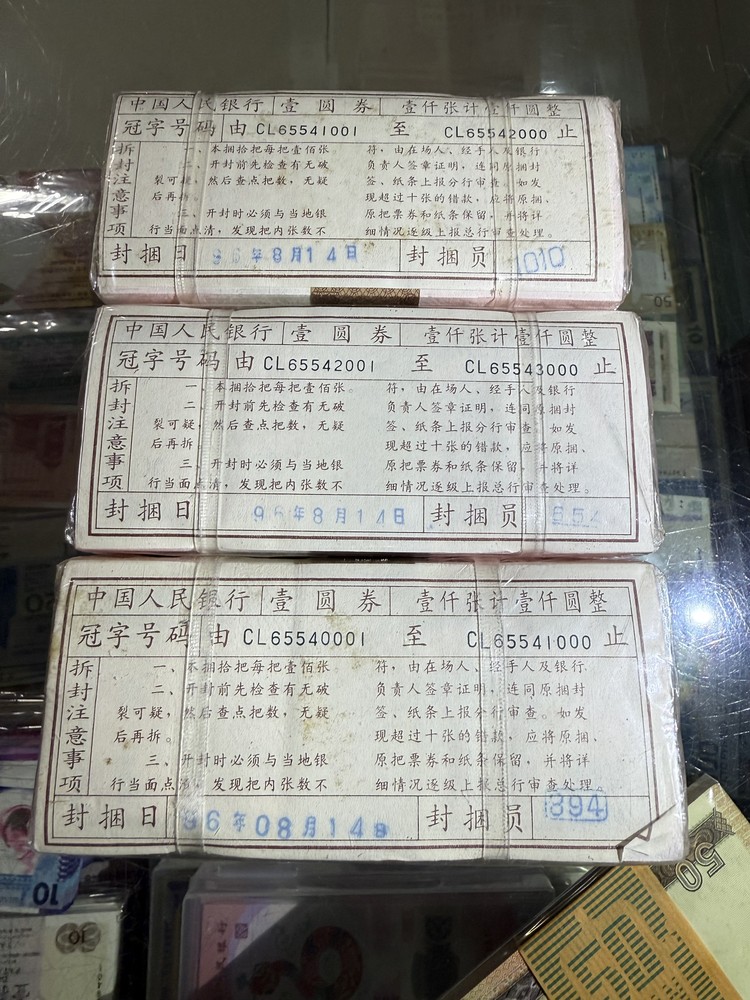 中国人民银行 壹圆券 壹仟张计壹仟圆整
冠字号码 由 CL65541001 至 CL65542000 止
拆封注意事项
一、本捆拾把每把壹佰张
二、开封前先检查有无破
裂可疑，然后查点把数，无疑
后再拆。
三、开封时必须与当地银
行当面点清，发现把内张数不
符，由在场人、经手人及银行
负责人签章证明，连同原捆封
签、纸条上报分行审查。如发
现超过十张的错款，应将原捆、
原把票券和纸条保留，并将详
细情况逐级上报总行审查处理。
封捆日 96年8月14日 封捆员 1010
中国人民银行 壹圆券 壹仟张计壹仟圆整
冠字号码 由 CL65542001 至 CL65543000 止
拆封注意事项
一、本捆拾把每把壹佰张。
二、开封前先检查有无破
裂可疑，然后查点把数，无疑
后再拆。
三、开封时必须与当地银
行当面点清，发现把内张数不
符，由在场人、经手人及银行
负责人签章证明，连同原捆封
签、纸条上报分行审查。如发
现超过十张的错款，应将原捆、
原把票券和纸条保留，并将详
细情况逐级上报总行审查处理。
封捆日 96年8月14日 封捆员
中国人民银行 壹圆券 壹仟张计壹仟圆整
冠字号码 由 CL65540001 至 CL65541000 止
拆封注意事项
一、本捆拾把每把壹佰张
二、开封前先检查有无破
裂可疑，然后查点把数，无疑
后再拆。
三、开封时必须与当地银
行当面点清，发现把内张数不
符，由在场人、经手人及银行
负责人签章证明，连同原捆封
签、纸条上报分行审查。如发
现超过十张的错款，应将原捆、
原把票券和纸条保留，并将详
细情况逐级上报总行审查处理。
封捆日 96年08月14日 封捆员 394
50
10
10